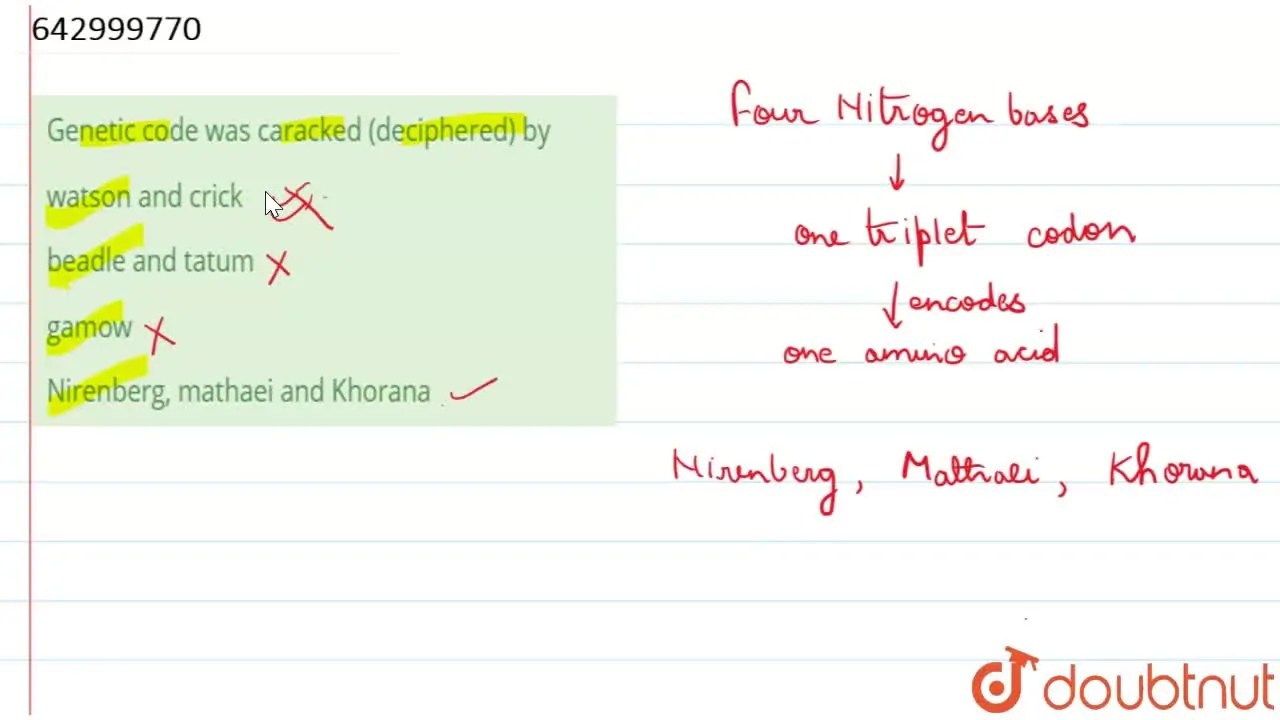 642999770
Genetic code was caracked (deciphered) by
watson and crick
beadle and tatum
gamow
Nirenberg, mathaei and Khorana
Four Nitrogen bases
one triplet codon
encodes
one amino acid
Nirenberg, Matthaei, Khorana
doubtnut